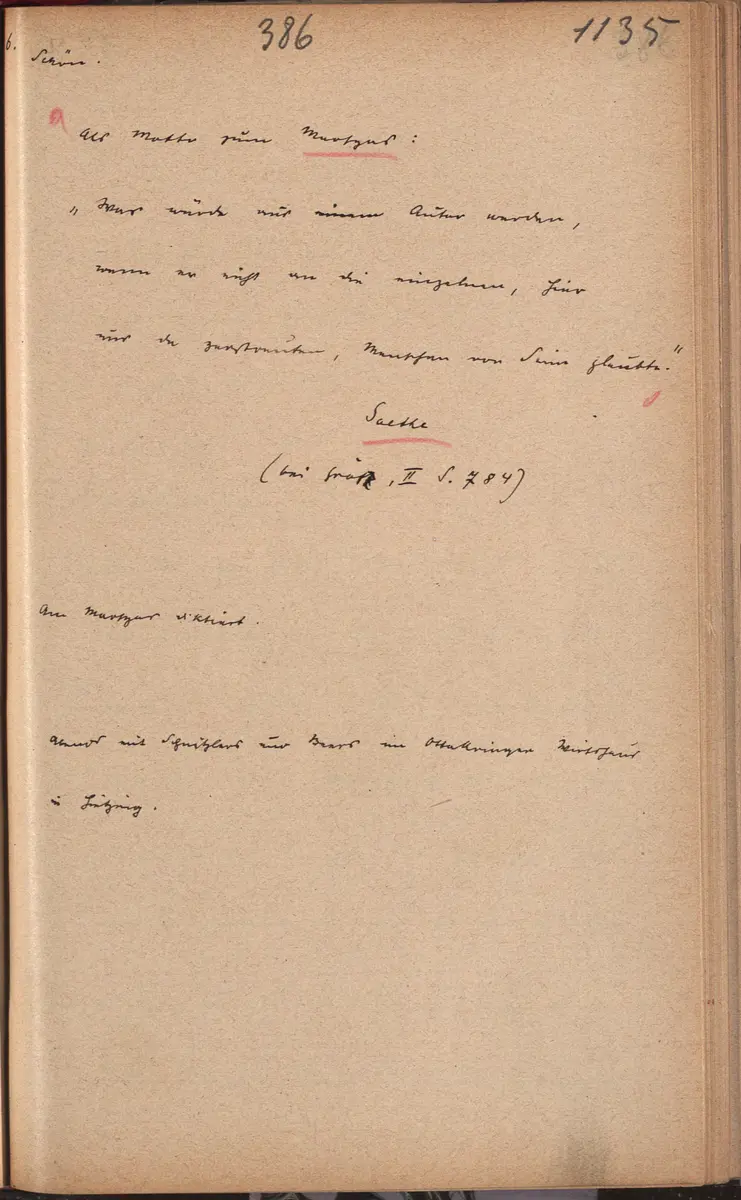 386 1135
6.
Schön.
Als Motto zum Marsyas:
„Was würde aus einem Autor werden,
wenn er nicht an die einzelnen, hier
und da zerstreuten, Menschen von Sinn glaubte."
Goethe
(bei Gräf, II S. 784)
Am Marsyas diktiert.
Abends mit Schnitzlers und Beers im Ottakringer Wirtshaus
in Hietzing.